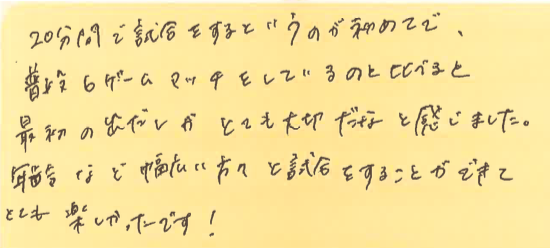 20分間で試合をするというのが初めてで、
普段6ゲームマッチをしているのと比べると
最初の出だしがとても大切だなと感じました。
年齢など幅広い方々と試合をすることができて
とても楽しかったです！